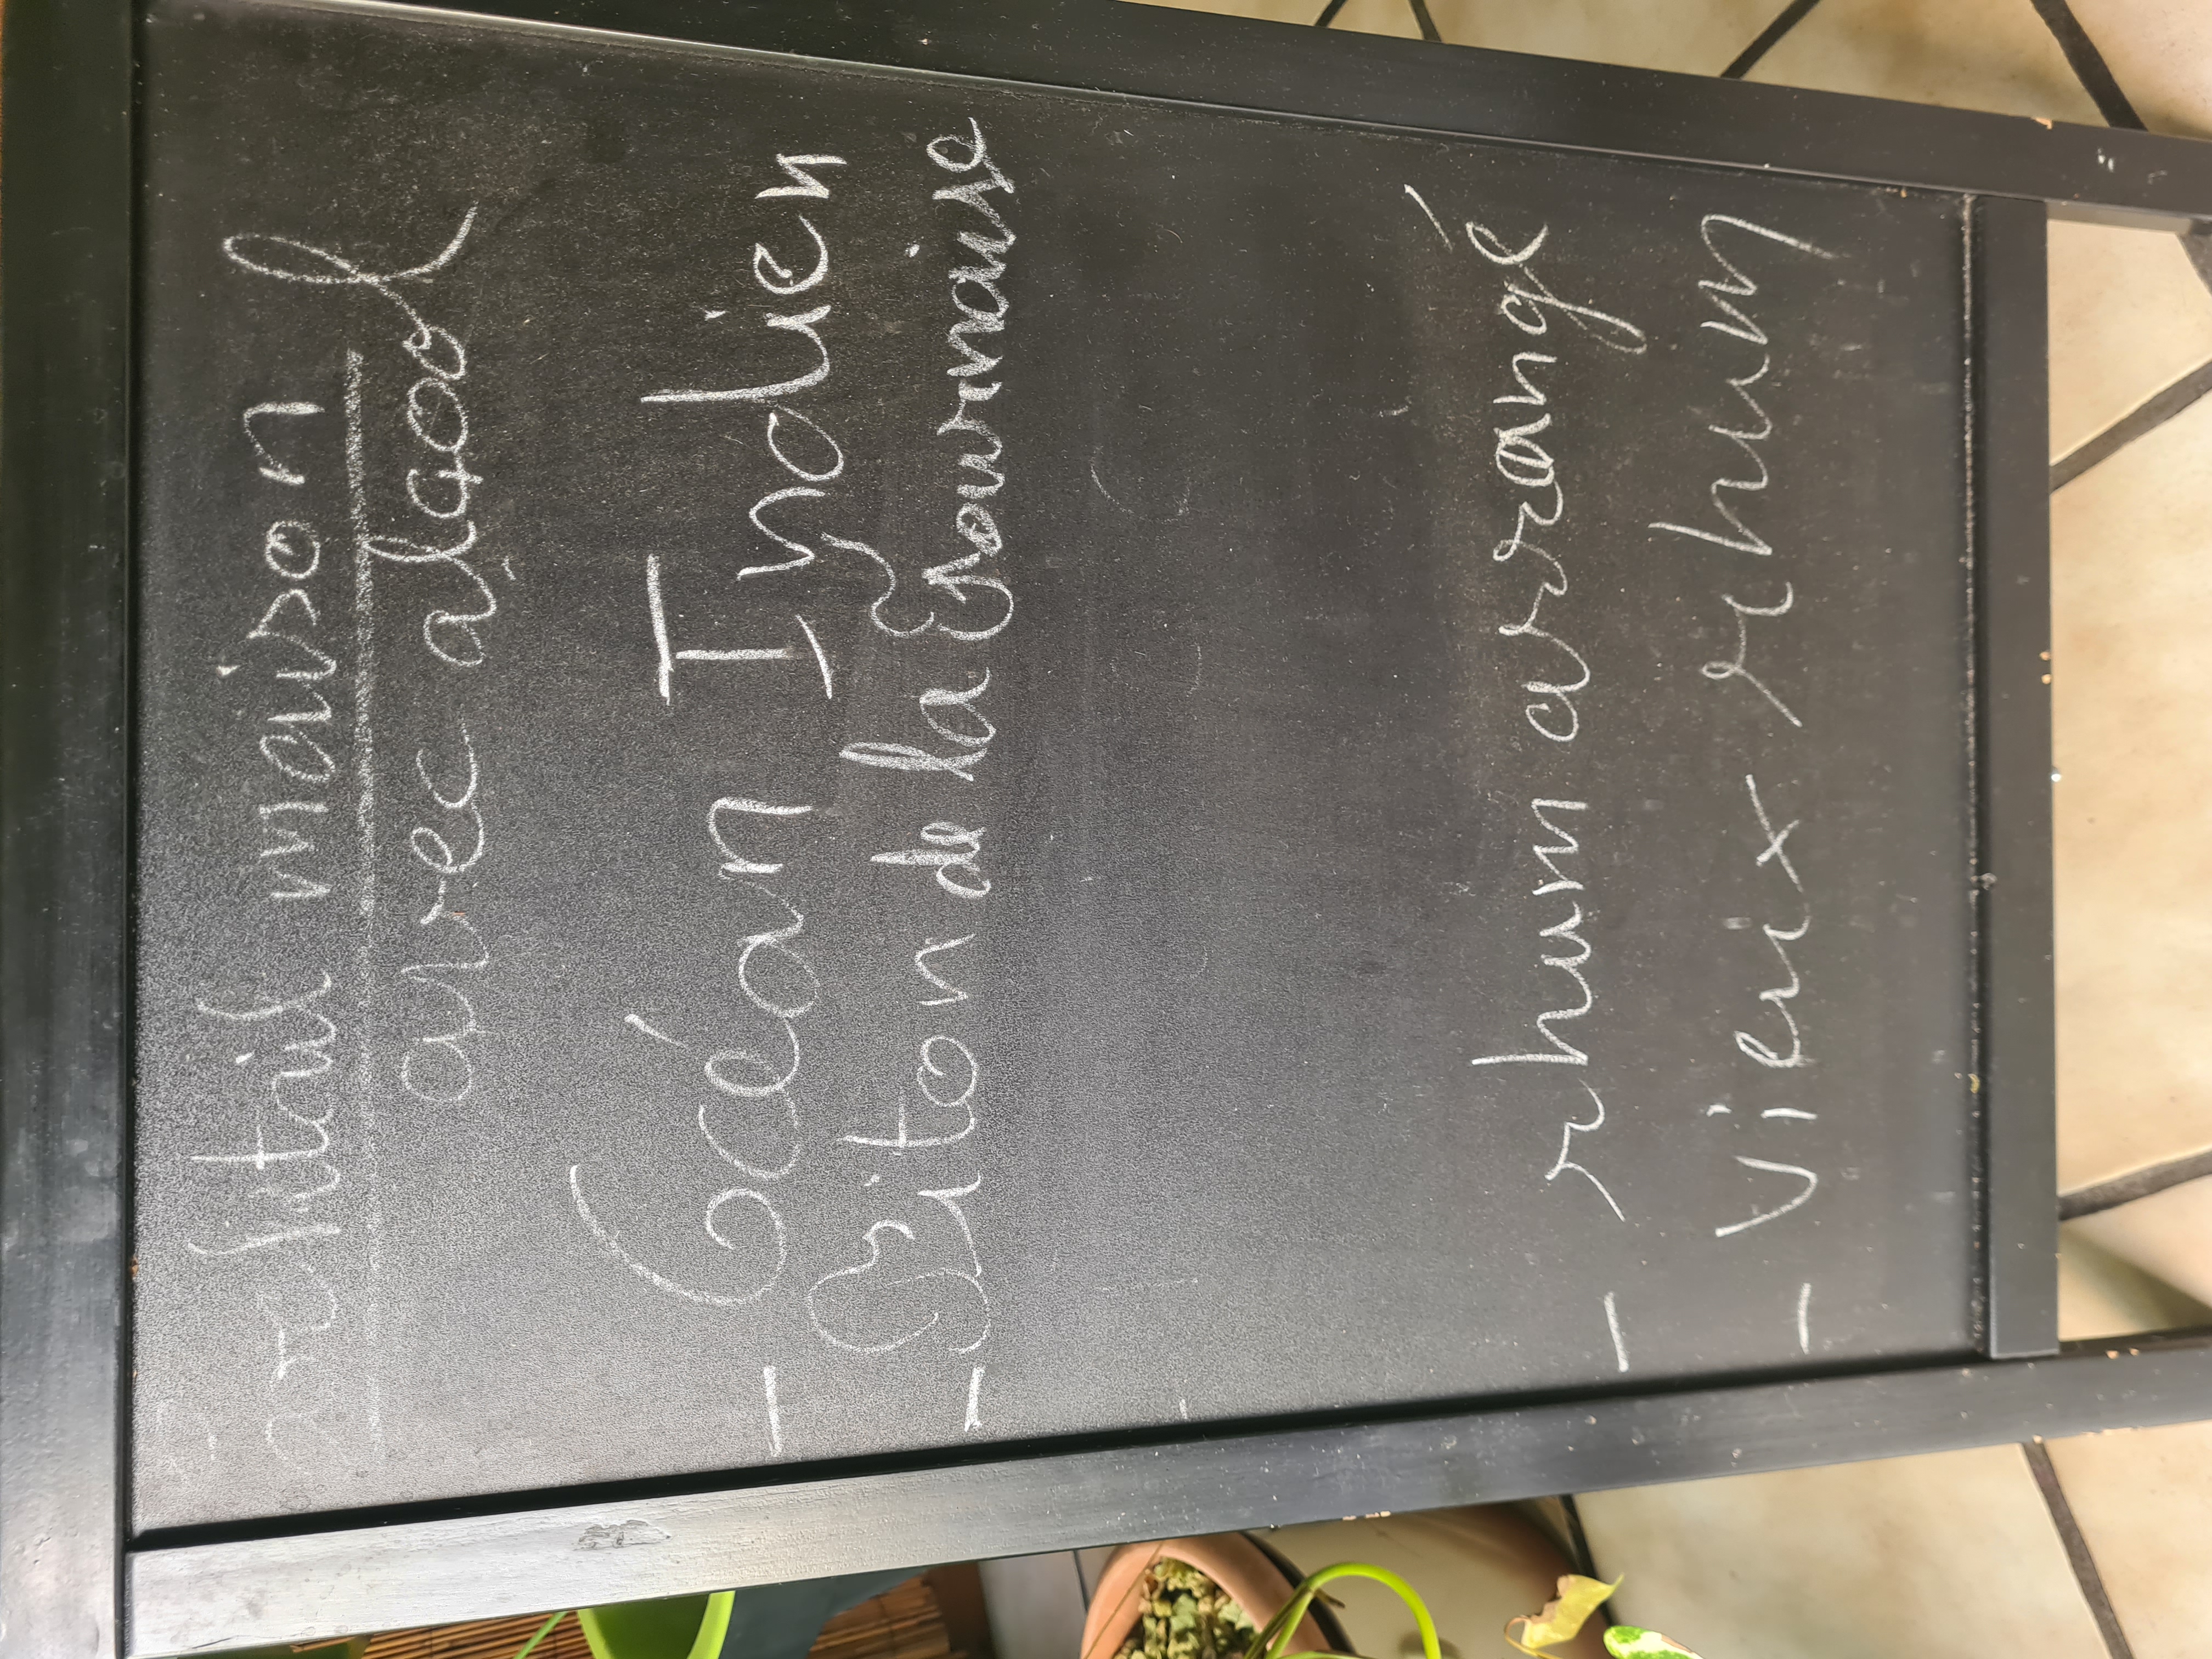 Cocktail maison
avec alcool
- Océan Indien
- Piton de la Fournaise
- rhum arrangé
- Vieux rhum